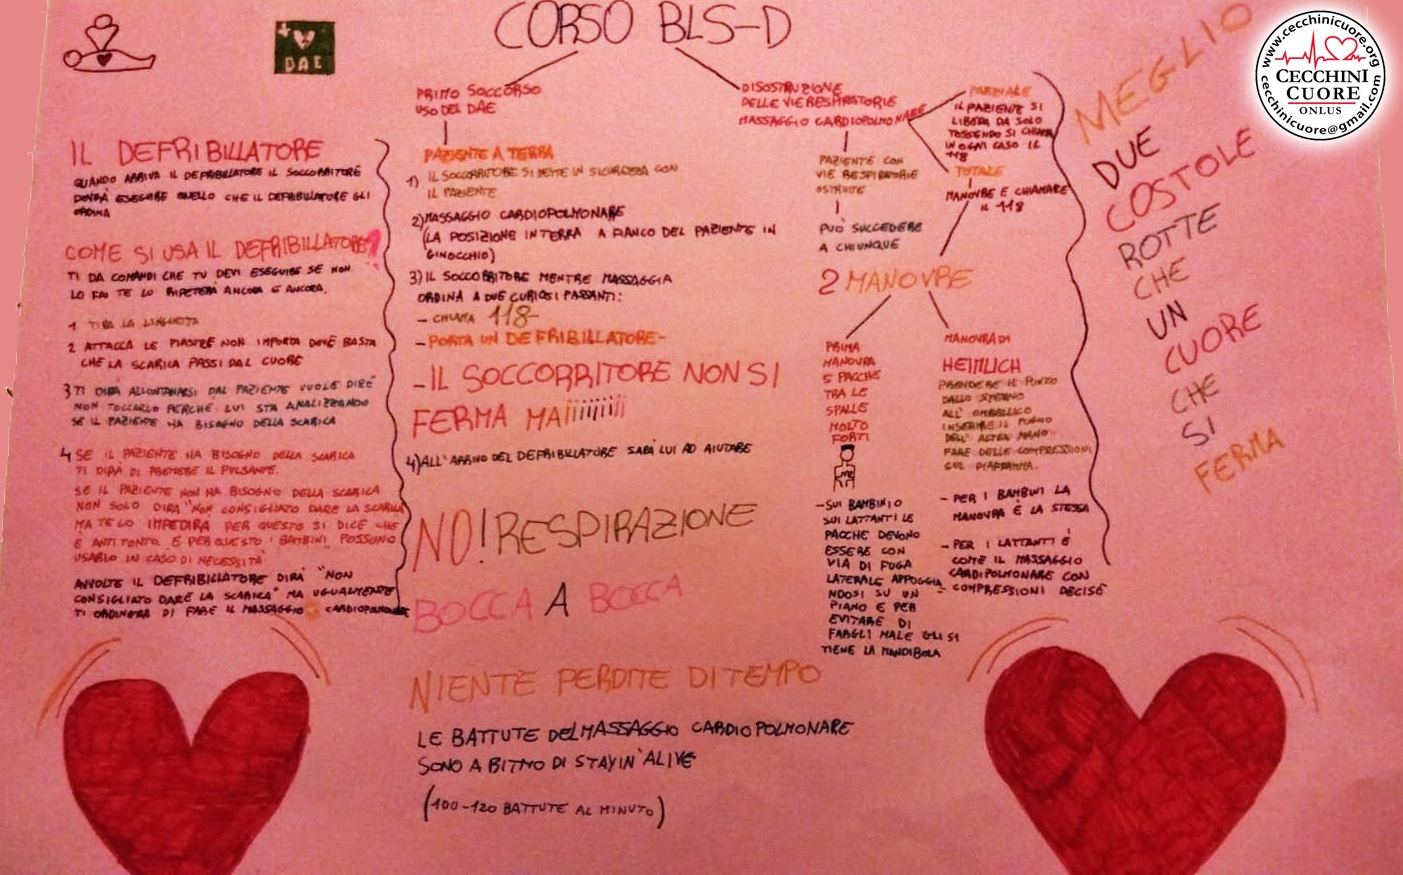 CORSO BLS-D
DAE
www.cecchinicuore.org
CECCHINI
CUORE
ONLUS
cecchinicuore@gmail.com
IL DEFRIBILLATORE
QUANDO ARRIVA IL DEFRIBILLATORE IL SOCCORRITORE
DOVRÀ ESEGUIRE QUELLO CHE IL DEFRIBILLATORE GLI
ORDINA
COME SI USA IL DEFRIBILLATORE?
TI DA COMANDI CHE TU DEVI ESEGUIRE SE NON
LO FAI TE LO RIPETERÀ ANCORA E ANCORA.
1 TIRA LA LINGUETTA
2 ATTACCA LE PIASTRE NON IMPORTA DOVE BASTA
CHE LA SCARICA PASSI DAL CUORE
3 TI DIRÀ ALLONTANARSI DAL PAZIENTE VUOLE DIRE
NON TOCCARLO PERCHÉ LUI STA ANALIZZANDO
SE IL PAZIENTE HA BISOGNO DELLA SCARICA
4 SE IL PAZIENTE HA BISOGNO DELLA SCARICA
TI DIRÀ DI PREMERE IL PULSANTE.
SE IL PAZIENTE NON HA BISOGNO DELLA SCARICA
NON SOLO DIRÀ "NON CONSIGLIATO DARE LA SCARICA
MA TE LO IMPEDIRÀ PER QUESTO SI DICE CHE
È ANTITONTO. E PER QUESTO I BAMBINI POSSONO
USARLO IN CASO DI NECESSITÀ
AVVOLTE IL DEFRIBILLATORE DIRÀ "NON
CONSIGLIATO DARE LA SCARICA" MA UGUALMENTE
TI ORDINERÀ DI FARE IL MASSAGGIO CARDIOPOLMONARE
PRIMO SOCCORSO
USO DEL DAE
PAZIENTE A TERRA
1) IL SOCCORRITORE SI METTE IN SICUREZZA CON
IL PAZIENTE
2) MASSAGGIO CARDIOPOLMONARE
(LA POSIZIONE IN TERRA A FIANCO DEL PAZIENTE IN
GINOCCHIO)
3) IL SOCCORRITORE MENTRE MASSAGGIA
ORDINA A DUE CURIOSI PASSANTI:
- CHIAMA 118-
- PORTA UN DEFRIBILLATORE-
-IL SOCCORRITORE NON SI
FERMA MAIiiiiiiii
4) ALL'ARRIVO DEL DEFRIBILLATORE SARÀ LUI AD AIUTARE
NO! RESPIRAZIONE
BOCCA A BOCCA
NIENTE PERDITE DI TEMPO
LE BATTUTE DEL MASSAGGIO CARDIOPOLMONARE
SONO A RITMO DI STAYIN'ALIVE
(100-120 BATTUTE AL MINUTO)
DISOSTRUZIONE
DELLE VIE RESPIRATORIE
MASSAGGIO CARDIOPOLMONARE
PAZIENTE CON
VIE RESPIRATORIE
OSTRUITE
PUÒ SUCCEDERE
A CHIUNQUE
PARZIALE
IL PAZIENTE SI
LIBERA DA SOLO
TOSSENDO SI CHIAMA
IN OGNI CASO IL
118
TOTALE
MANOVRE E CHIAMARE
IL 118
2 MANOVRE
PRIMA
MANOVRA
5 PACCHE
TRA LE
SPALLE
MOLTO
FORTI
- SUI BAMBINI O
SUI LATTANTI LE
PACCHE DEVONO
ESSERE CON
VIA DI FUGA
LATERALE APPOGGIA
NDOSI SU UN
PIANO E PER
EVITARE DI
FARGLI MALE GLI SI
TIENE LA MANDIBOLA
MANOVRA DI
HEIMLICH
PRENDERE IL PUNTO
DALLO STERNO
ALL'OMBELLICO
INSERIRE IL PUGNO
DELL'ALTRA MANO
FARE DELLE COMPRESSIONI
SUL DIAFRAMMA.
- PER I BAMBINI LA
MANOVRA È LA STESSA
- PER I LATTANTI È
COME IL MASSAGGIO
CARDIOPOLMONARE CON
COMPRESSIONI DECISE
MEGLIO
DUE
COSTOLE
ROTTE
CHE
UN
CUORE
CHE
SI
FERMA